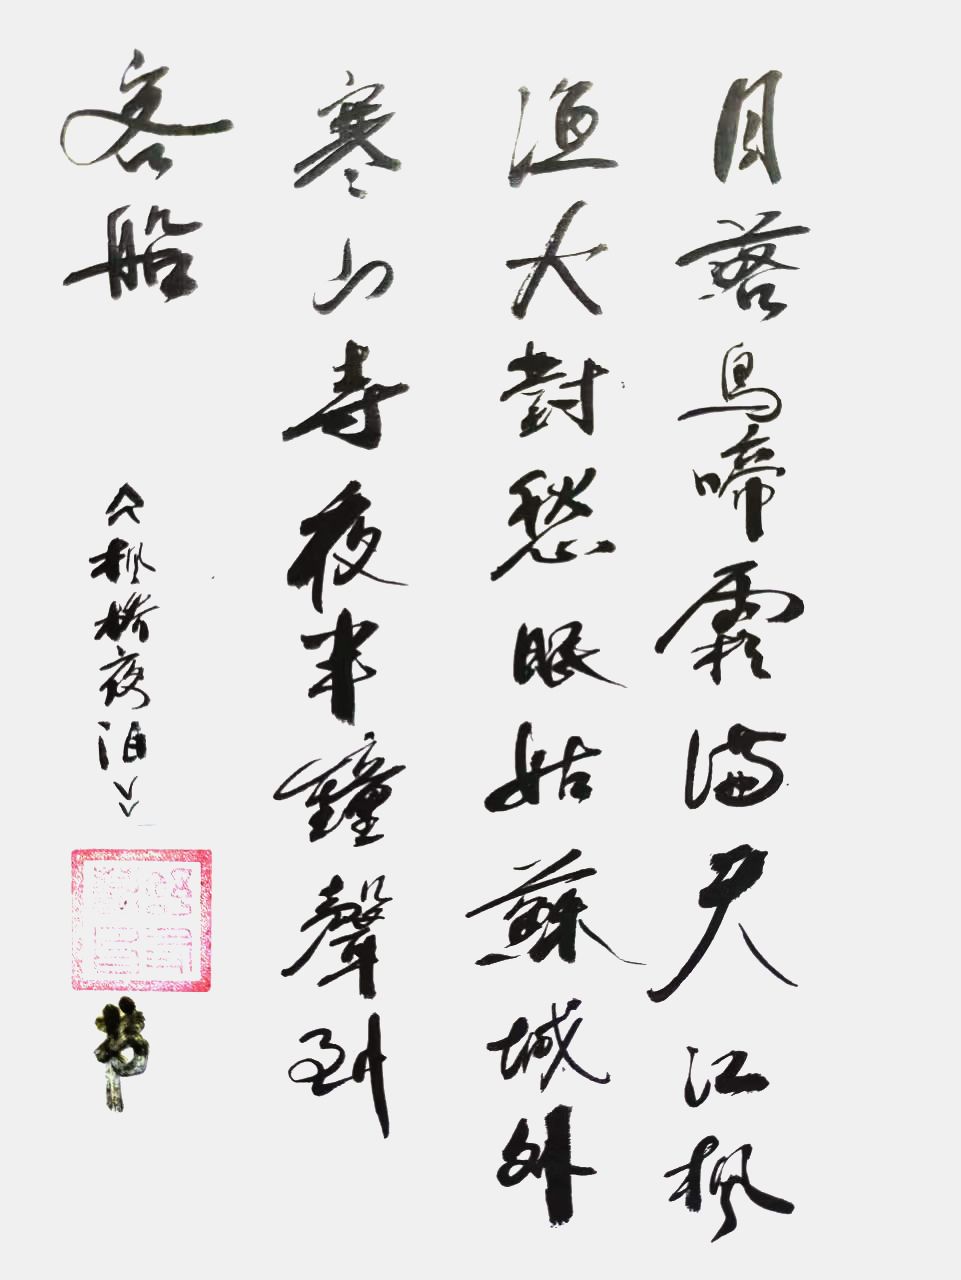 月落烏啼霜满天江枫
渔火對愁眠姑蘇城外
寒山寺夜半鐘聲到
客船
《枫桥夜泊》
书